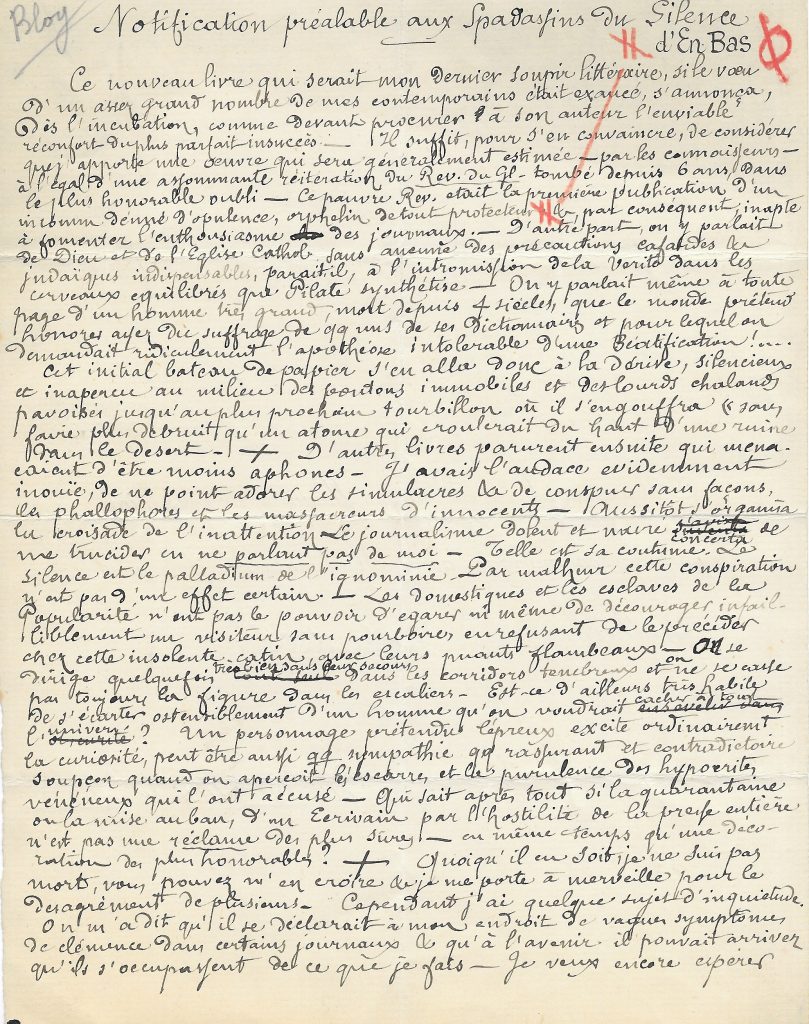 Bloy
Notification préalable aux Spadassins du Silence
d'En Bas
Ce nouveau livre qui serait mon dernier soupir littéraire, si le vœu
d'un assez grand nombre de mes contemporains était exaucé, s'annonça,
dès l'incubation, comme devant procurer à son auteur l'enviable
réconfort du plus parfait insuccès — Il suffit, pour s'en convaincre, de considérer
que j'apporte une œuvre qui sera généralement estimée — par les connaisseurs —
à l'égal d'une assommante réitération du Rev. du Gl. tombé depuis 6 ans, dans
le plus honorable oubli — Ce pauvre Rev. était la première publication d'un
inconnu dénué d'opulence, orphelin de tout protecteur & par conséquent, inapte
à fomenter l'enthousiasme des journaux. — D'autre part, on y parlait
de Dieu et de l'Eglise Cathol. sans aucune des précautions cafardes &
judaïques indispensables, paraît il, à l'intromission de la Vérité dans les
cerveaux équilibrés que Pilate synthétise — On y parlait même à toute
page d'un homme très grand, mort depuis 4 siècles, que le monde prétend
honorer avec du suffrage de qq uns de ses Dictionnaires et pour lequel on
demandait ridiculement l'apothéose intolérable d'une Béatification !....
Cet initial bateau de papier s'en alla donc à la dérive, silencieux
et inaperçu au milieu des pontons immobiles et des lourds chalands
pavoisés jusqu'au plus prochain tourbillon où il s'engouffra (sans
faire plus de bruit qu'un atome qui croulerait du haut d'une ruine
dans le désert — + D'autres livres parurent ensuite qui mena-
caient d'être moins aphones — J'avais l'audace evidemment
inouïe, de ne point adorer les simulacres & de conspuer sans façons,
les phallophores et les massacreurs d'innocents — Aussitôt s'organisa
la croisade de l'inattention Le journalisme dolent et navré concerta de
me trucider en ne parlant pas de moi — Telle est sa coutume. Le
silence est le palladium de l'ignominie. Par malheur cette conspiration
n'est pas d'un effet certain — Les domestiques et les esclaves de la
Popularité n'ont pas le pouvoir d'égarer ni même de décourager infail-
liblement un visiteur sans pourboires, en refusant de le précéder
chez cette insolente catin, avec leurs puants flambeaux — On se
dirige quelquefois très bien sans leur secours dans les corridors tenebreux et on ne se casse
pas toujours la figure dans les escaliers — Est-ce d'ailleurs très habile
de s'écarter ostensiblement d'un homme qu'on voudrait cacher à tout
l'univers ? Un personnage prétendu lépreux excite ordinairement
la curiosité, peut être aussi qq sympathie qq rassurant et contradictoire
soupçon quand on aperçoit les escarres et la purulence des hypocrites
vénéneux qui l'ont accusé — Qui sait après tout si la quarantaine
ou la mise au ban, d'un Ecrivain par l'hostilité de la presse entière
n'est pas une réclame des plus sûres, — en même temps qu'une déco-
ration des plus honorables ? — + Quoiqu'il en soit, je ne suis pas
mort, vous pouvez m'en croire & je me porte à merveille pour le
desagrément de plusieurs — Cependant j'ai quelque sujet d'inquiétude.
On m'a dit qu'il se déclarait à mon endroit de vagues symptômes
de clémence dans certains journaux & qu'à l'avenir il pouvait arriver
qu'ils s'occupassent de ce que je fais — Je veux encore espérer